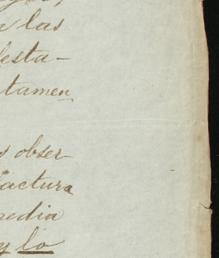 las
esta-
tamen
obser-
factura
media
y lo